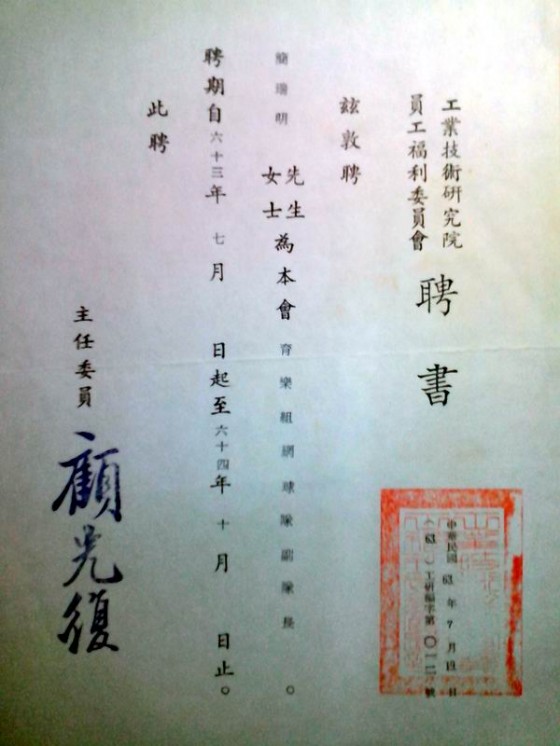 工業技術研究院
員工福利委員會
聘書
茲敦聘
簡瑞明
先生
女士
為本會育樂組網球隊副隊長。
聘期自六十三年七月 日起至六十四年十月 日止。
此聘
主任委員 顧光復
中華民國63年7月12日
(63.)工研福字第〇一二號